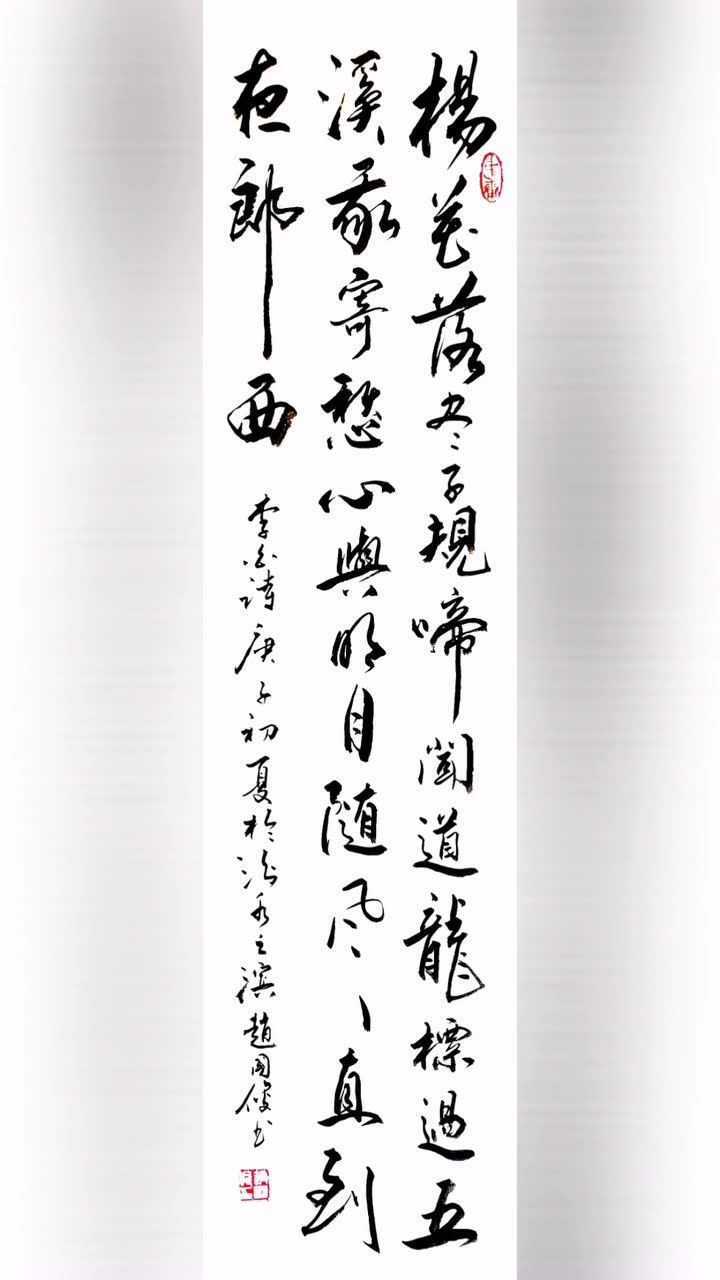 楊花落尽子規啼聞道龍標過五
溪我寄愁心與明月随风直到
夜郎西
李白诗庚子初夏於水之滨趙国俊书